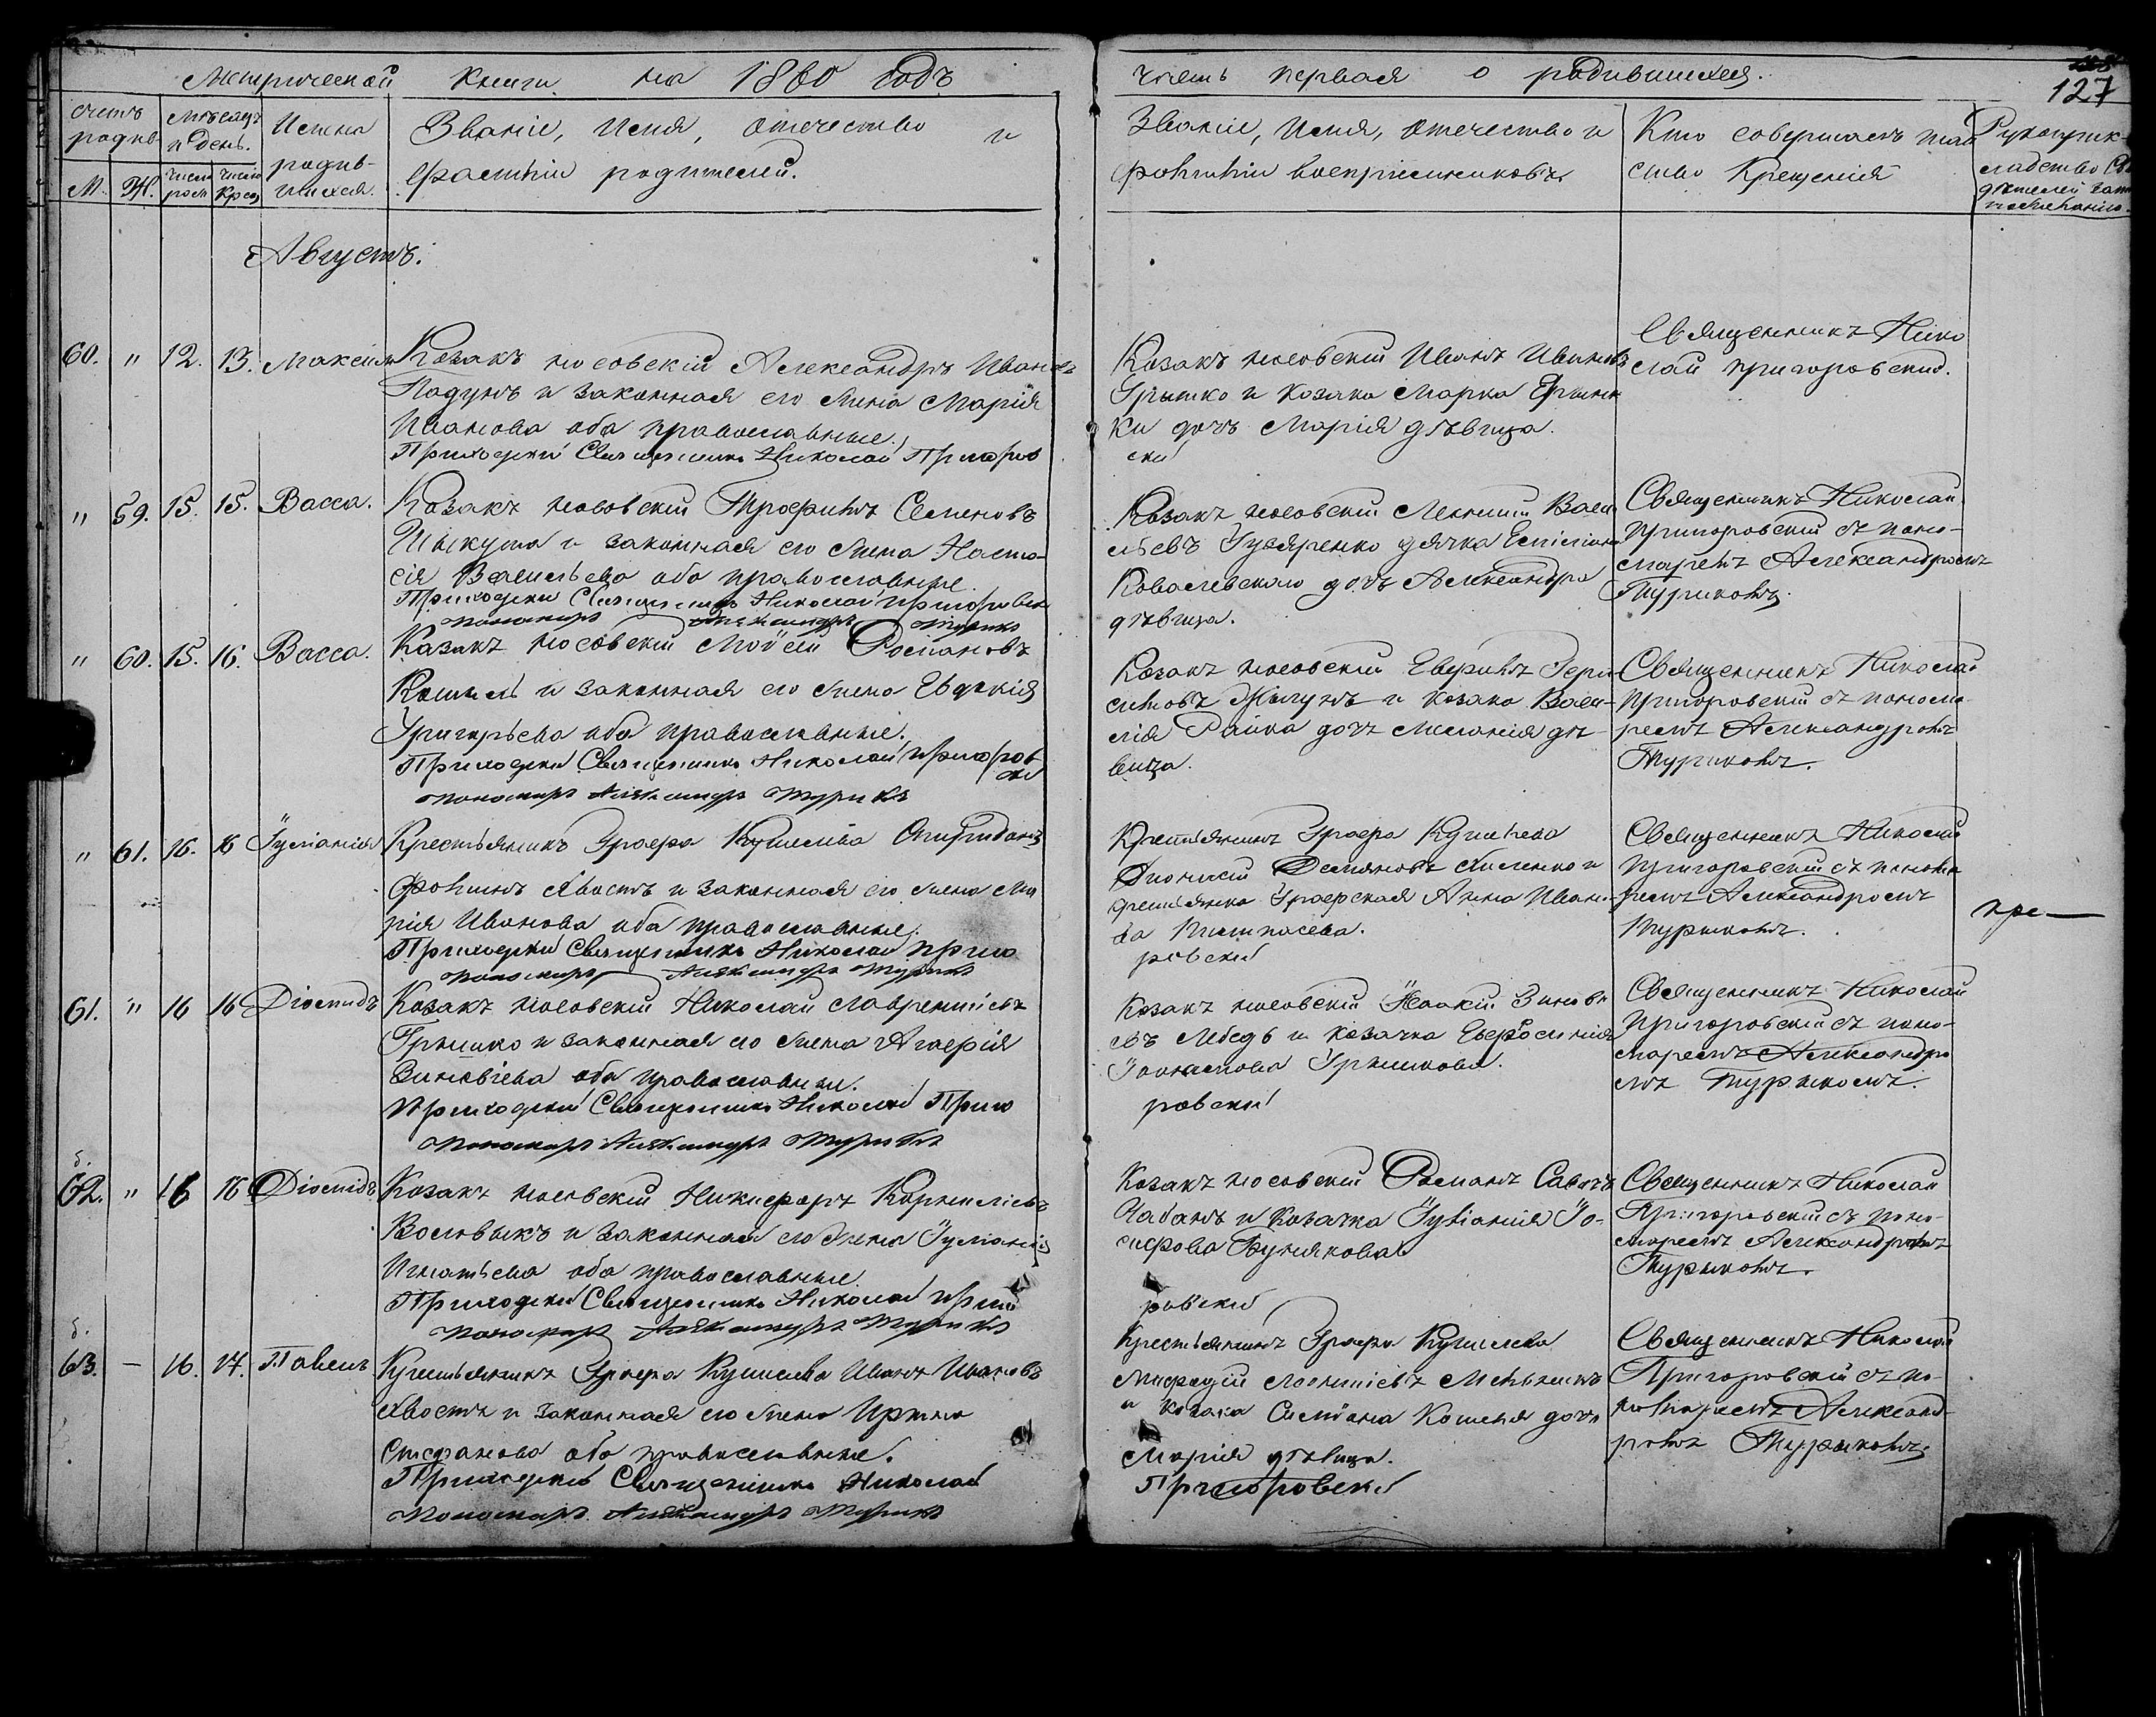 Метрической Книги на 1860 годъ
часть первая о родившихся.
127
Счетъ родив-
Мѣсяцъ и день.
Имена родив-
шихся.
Званіе, Имя, Отечество и
фамилія родителей.
Званіе, Имя, Отечество и
фамилія воспріемниковъ.
Кто совершалъ таин
ство Крещенія
Рукоприк-
ладство
М. Ж. число рожд число Крещ
Августъ.
60. " 12. 13. Максимъ
Козакъ носовскій Александръ Ивановъ
Падунъ и законная его жена Марія
Иванова оба православные.
Приходскій Священникъ Николай Пригоров
Козакъ носовскій Иванъ Ивановъ
Грышко и козака Марка Грышк
ки дочь Марія дѣвица.
скій
Священникъ Нико
лай Пригоровскій.
" 59. 15. 15. Васса.
Козакъ носовскій Трофимъ Семеновъ
и законная его жена Наста-
сія Васильева оба православные.
Приходскій Священникъ Николай Пригоровскій
пономарь Александръ Турикъ
Козакъ носовскій Васи
льевъ дячка
Ковалевского дочь Александра
дѣвица.
Священникъ Николай
Пригоровскій съ поно-
маремъ Александромъ
Турикомъ.
" 60. 15. 16. Васса.
Козакъ носовскій Мойсей Романовъ
Кошель и законная его жена Евдокія
Григорьева оба православные.
Приходскій Священникъ Николай Пригоров
скій
пономарь Александръ Турикъ
Козакъ носовскій Ефимъ Гера
симовъ и козака Васи-
лія Райка дочь Меланія дѣ-
вица.
Священникъ Николай
Пригоровскій съ понома
ремъ Александромъ
Турикомъ.
" 61. 16. 16 Іуліанія
Крестьянинъ Графа Кушелева
Хвостъ и законная его жена Ма
рія Иванова оба православные.
Приходскій Священникъ Николай Приго
пономарь Александръ Турикъ
Крестьянинъ Графа Кушелева
Діонисій Демяновъ и
крестьянка Графская Анна Ивано-
ва
ровскій
Священникъ Николай
Пригоровскій съ понома
ремъ Александромъ
Турыкомъ.
61. " 16 16 Діомидъ
Козакъ носовскій Николай Лаврентіевъ
Грышко и законная его жена Агафія
Зиновіева оба православные.
Приходскій Священникъ Николай Приго
пономарь Александръ Турикъ
Козакъ носовскій Зиновіе
въ Лебедь и козачка Евфросинія
Грышкова.
ровскій
Священникъ Николай
Пригоровскій съ поно-
маремъ Александро
мъ Турыкомъ.
62. " 16 16 Діомидъ
Козакъ носовскій Никифоръ Корниліевъ
Воловыкъ и законная его жена Іуліанія
Игнатьева оба православные.
Приходскій Священникъ Николай Приго
пономарь Александръ Турикъ
Козакъ носовскій Романъ Савичъ
Чабанъ и козачка Іуліанія Іо-
сифова
ровскій
Священникъ Николай
Пригоровскій съ поно-
маремъ Александромъ
Турыкомъ.
63. — 16. 17. Павелъ
Крестьянинъ Графа Кушелева Иванъ Ивановъ
Хвостъ и законная его жена Ирина
Стефанова оба православные.
Приходскій Священникъ Николай
пономарь Александръ Турикъ
Крестьянинъ Графа Кушелева
Мефодій Леонтіевъ Мельникъ
и козака Кошеля дочь
Марія дѣвица.
Пригоровскій
Священникъ Николай
Пригоровскій съ по-
номаремъ Александ-
ромъ Турыкомъ.